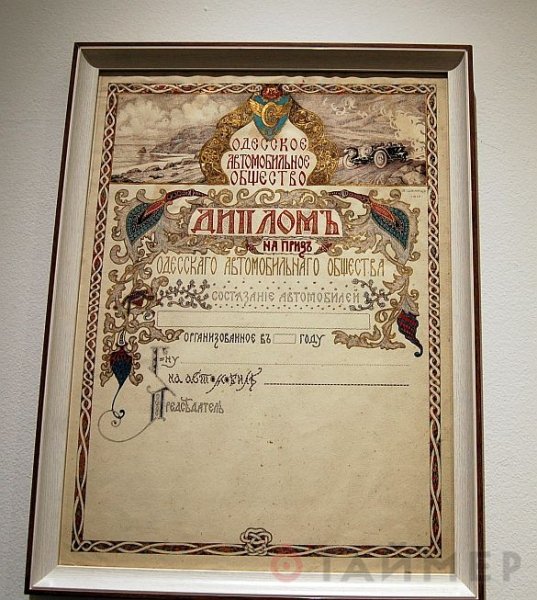 ОДЕССКОЕ
АВТОМОБИЛЬНОЕ
ОБЩЕСТВО
ДИПЛОМЪ
НА ПРИЗЪ
ОДЕССКАГО АВТОМОБИЛЬНАГО ОБЩЕСТВА
СОСТЯЗАНІЕ АВТОМОБИЛЕЙ
ОРГАНИЗОВАННОЕ ВЪ ГОДУ
Г-ну
на автомобилѣ
ПРЕДСѢДАТЕЛЬ
ТАЙМЕР